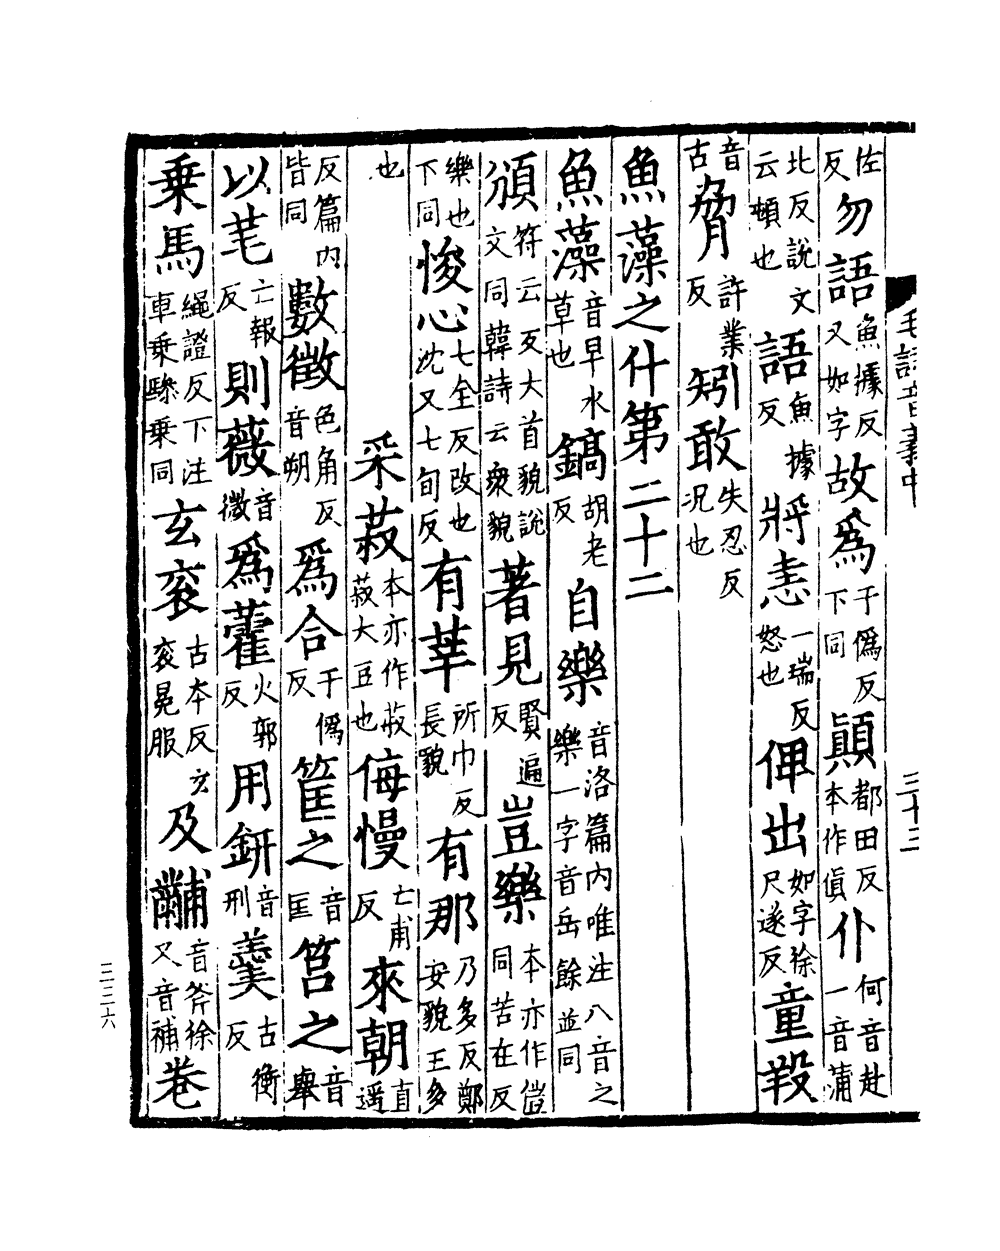 毛詩音義中 三十三
佐反勿語魚據反又如字故爲于僞反下同顚都田反本作傎仆何音赴一音蒲
北反說文云頓也語魚據反將恚一瑞反怒也俾出如字徐尺遂反童羖
音古脅許業反矧敢失忍反況也
魚藻之什第二十二
魚藻音早水草也鎬胡老反自樂音洛篇内唯注八音之樂一字音岳餘並同
頒符云反大首貌說文同韓詩云衆貌著見賢遍反豈樂本亦作愷同苦在反
樂也下同悛心七全反改也沈又七旬反有莘所巾反長貌有那乃多反鄭安貌王多
也
采菽本亦作菽菽大豆也侮慢亡甫反來朝直遥
反篇内皆同數徵色角反音朔爲合于僞反筐之音匡筥之音舉
以芼亡報反則薇音微爲藿火郭反用鉶音刑羹古衡反
乗馬繩證反下注車乗驂乗同玄衮古本反玄衮冕服及黼音斧徐又音補卷
三三六